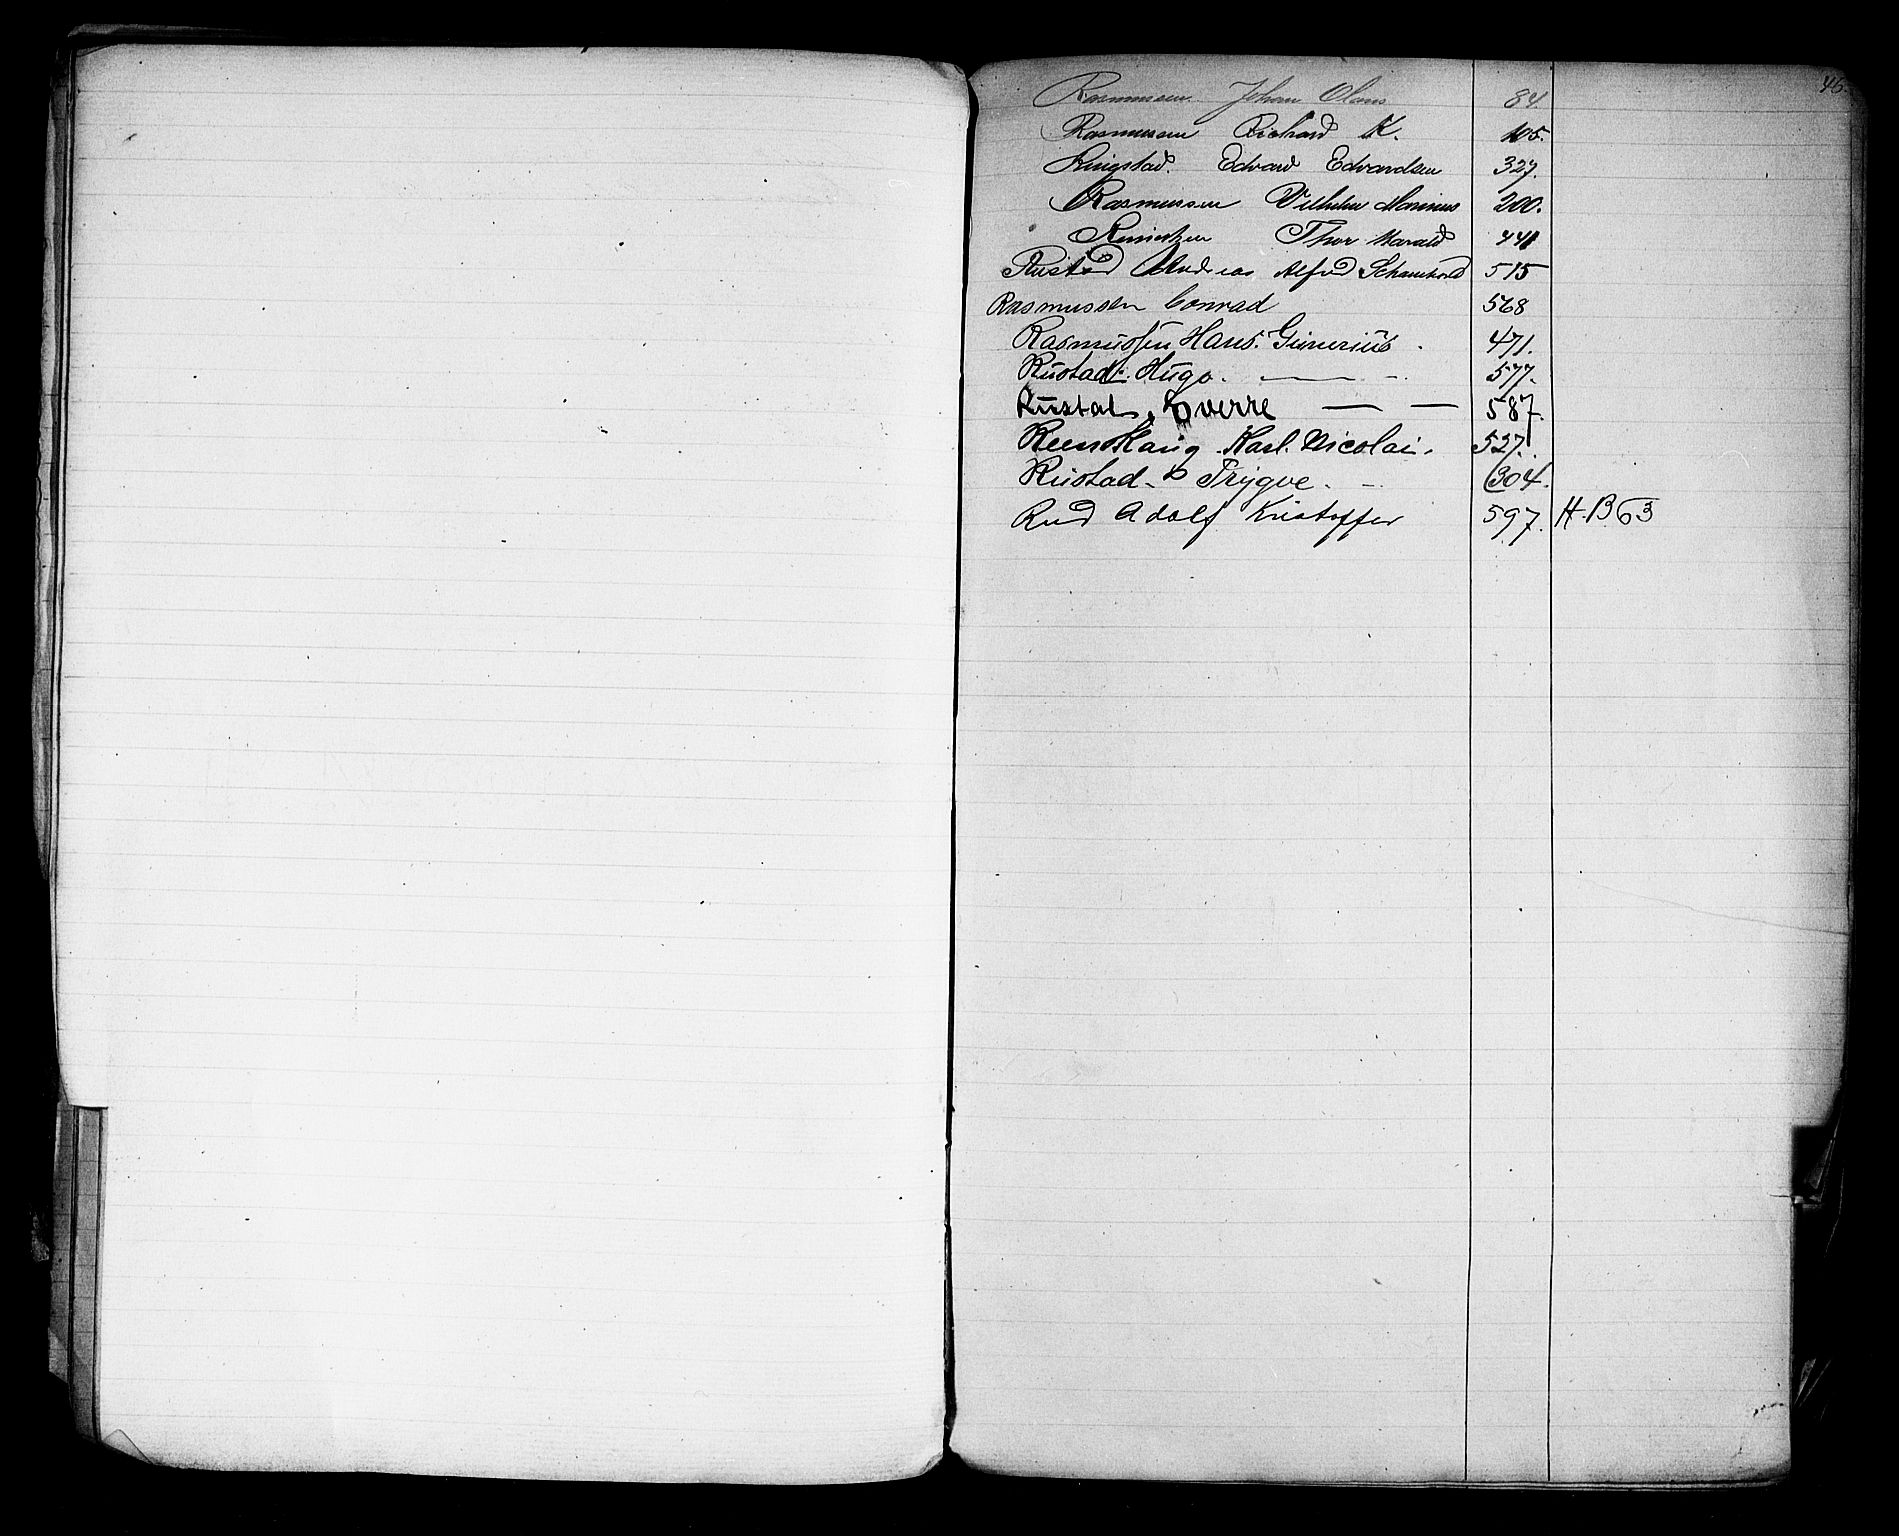 46.
Rasmussen Johan Olaus 84
Rasmussen Richard K. 105.
Ringstad. Edvard Edvardsen 327.
Rasmussen Vilhelm Marinius 200.
Thor Harald 441
Rustad Andreas Alfred 515
Rasmussen Conrad 568
Rasmussen Hans. Ginerius. 471.
Rustad. Hugo. — - 577.
Rustad, Sverre — — 587.
Karl. Nicolai. 527.
Rustad - Trygve. - 304.
Rud Adolf Kristoffer 597. H.B 63